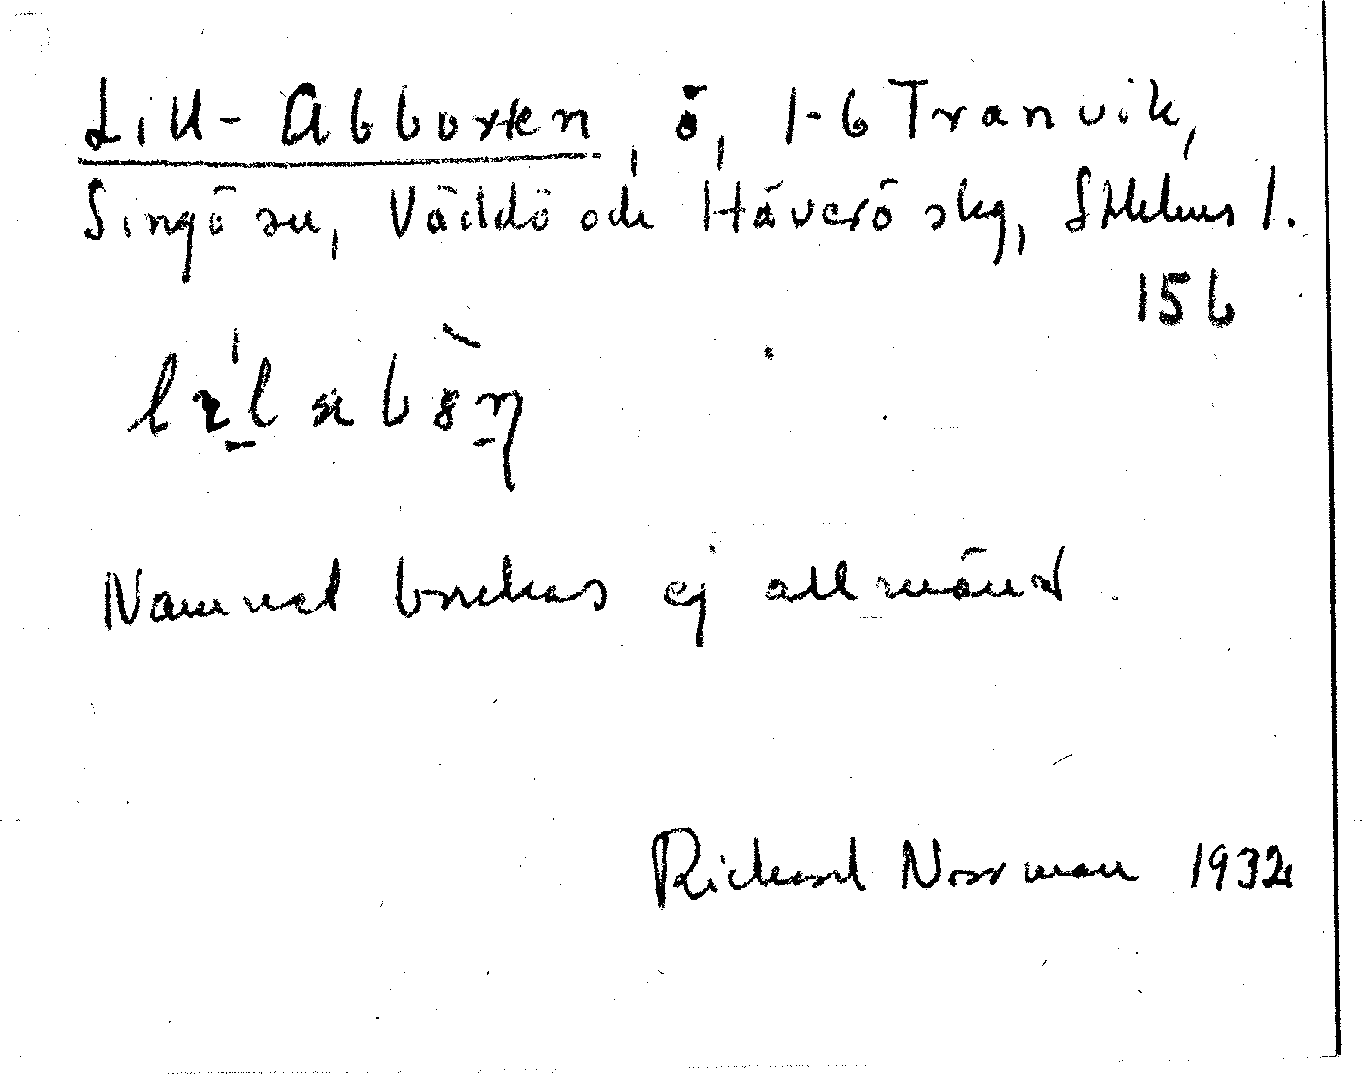 Lill-Abborren, ö, 1-6 Tranvik,
Singö sn, Väddö och Häverö skg, Sthlms l.
156
Namnet brukas ej allmänt.
Rickard Norrman 1932